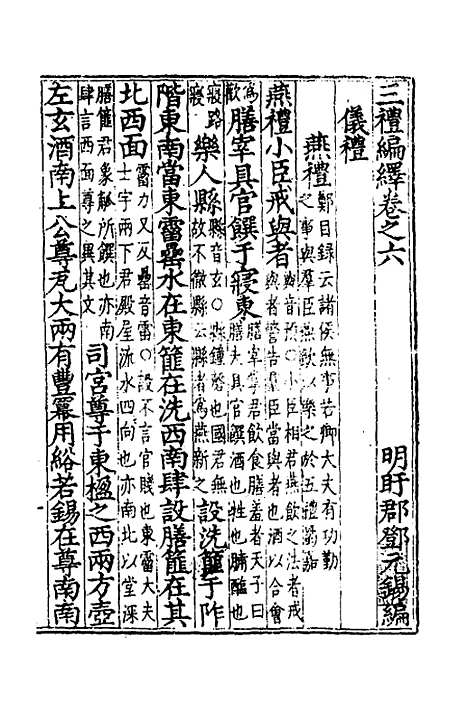 三禮編繹卷之六　明盱郡鄧元錫編
儀禮
燕禮 鄭目録云諸侯無事若卿大夫有功勤
之事與羣臣燕飲以樂之於五禮屬嘉
燕禮小臣戒與者 與音預○小臣相君燕飲之法者戒
與者警告羣臣當與者也酒以合會
爲歡 膳宰具官饌于寢東 膳宰掌君飲食膳羞者天子曰
膳夫具官饌酒也牲也脯醢也
寢路寢 樂人縣 縣音玄○縣鍾磬也國君無
故不徹縣云縣者爲燕新之 設洗篚于阼
階東南當東霤罍水在東篚在洗西南肆設膳篚在其
北西面 霤力又反罍音雷○設不言官賤也東霤大夫
士宇兩下君殿屋泒水四向也亦南北以堂深
膳篚君象觚所饌也亦南
肆言西面尊之異其文 司宮尊于東楹之西兩方壺
左玄酒南上公尊瓦大兩有豐冪用綌若錫在尊南南